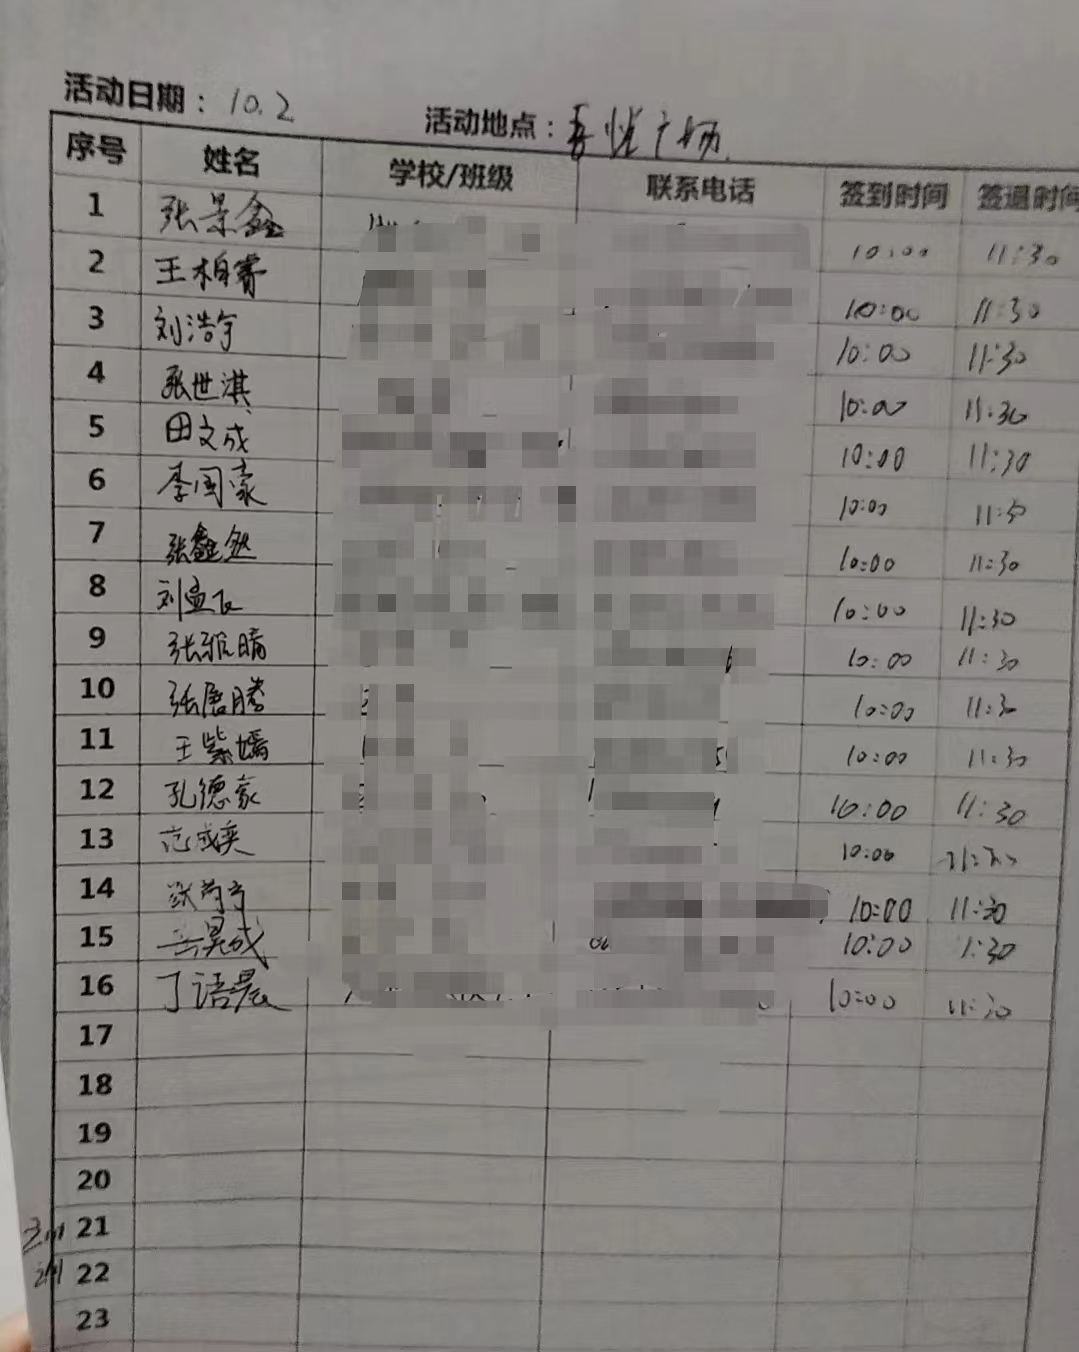 活动日期：10.2 活动地点：吾悦广场
序号 姓名 学校/班级 联系电话 签到时间 签退时间
1 张景鑫 10:00 11:30
2 王柏睿 10:00 11:30
3 刘浩宇 10:00 11:30
4 张世淇 10:00 11:30
5 田文成 10:00 11:30
6 李国豪 10:00 11:30
7 张鑫 10:00 11:30
8 刘孟飞 10:00 11:30
9 张雅晴 10:00 11:30
10 张唐腾 10:00 11:30
11 王紫嫣 10:00 11:30
12 孔德豪 10:00 11:30
13 范成奕 10:00 11:30
14 10:00 11:30
15 昊成 10:00 1:30
16 丁语晨 10:00 11:30
17
18
19
20
21
22
23